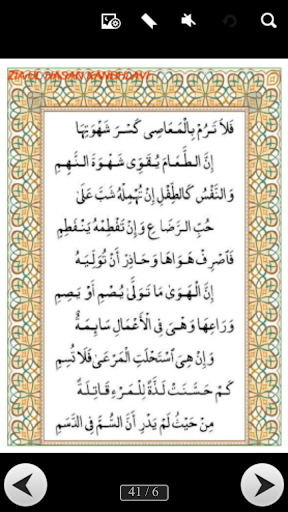 ZIA UL HASAN KANDHLAVI
فَلَا تَرُمْ بِالْمَعَاصِى كَسْرَ شَهْوَتِهَا
إِنَّ الطَّعَامَ يُقَوِّى شَهْوَةَ النَّهِمِ
وَالنَّفْسُ كَالطِّفْلِ إِنْ تُهْمِلْهُ شَبَّ عَلَى
حُبِّ الرَّضَاعِ وَإِنْ تَفْطِمْهُ يَنْفَطِمِ
فَاصْرِفْ هَوَاهَا وَحَاذِرْ أَنْ تُوَلِّيَهُ
إِنَّ الْهَوَى مَا تَوَلَّى يُصْمِ أَوْ يَصِمِ
وَرَاعِهَا وَهْىَ فِى الْأَعْمَالِ سَايِمَةٌ
وَإِنْ هِىَ اسْتَحْلَتِ الْمَرْعَى فَلَا تُسِمِ
كَمْ حَسَّنَتْ لَذَّةً لِلْمَرْءِ قَاتِلَةً
مِنْ حَيْثُ لَمْ يَدْرِ أَنَّ السُّمَّ فِى الدَّسَمِ
41 / 6